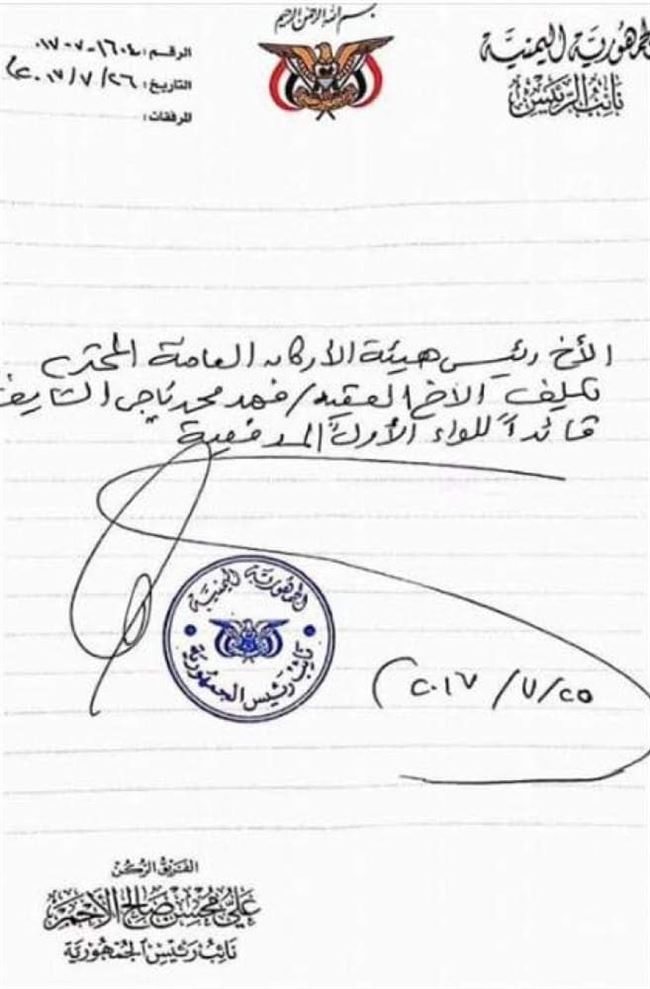 بسم الله الرحمن الرحيم
الجمهورية اليمنية
نائب الرئيس
الرقم: ١٦٠٤-٧-٠١٧
التاريخ: ٢٠١٧/٧/٢٦م
المرفقات:
الأخ رئيس هيئة الأركان العامة المحترم
تكليف الأخ العقيد/ فهد محمد ناجي الشايف
قائداً للواء الأول مدفعية
الجمهورية اليمنية
نائب رئيس الجمهورية
٢٠١٧/٧/٢٥م
الفريق الركن
علي محسن صالح الأحمر
نائب رئيس الجمهورية